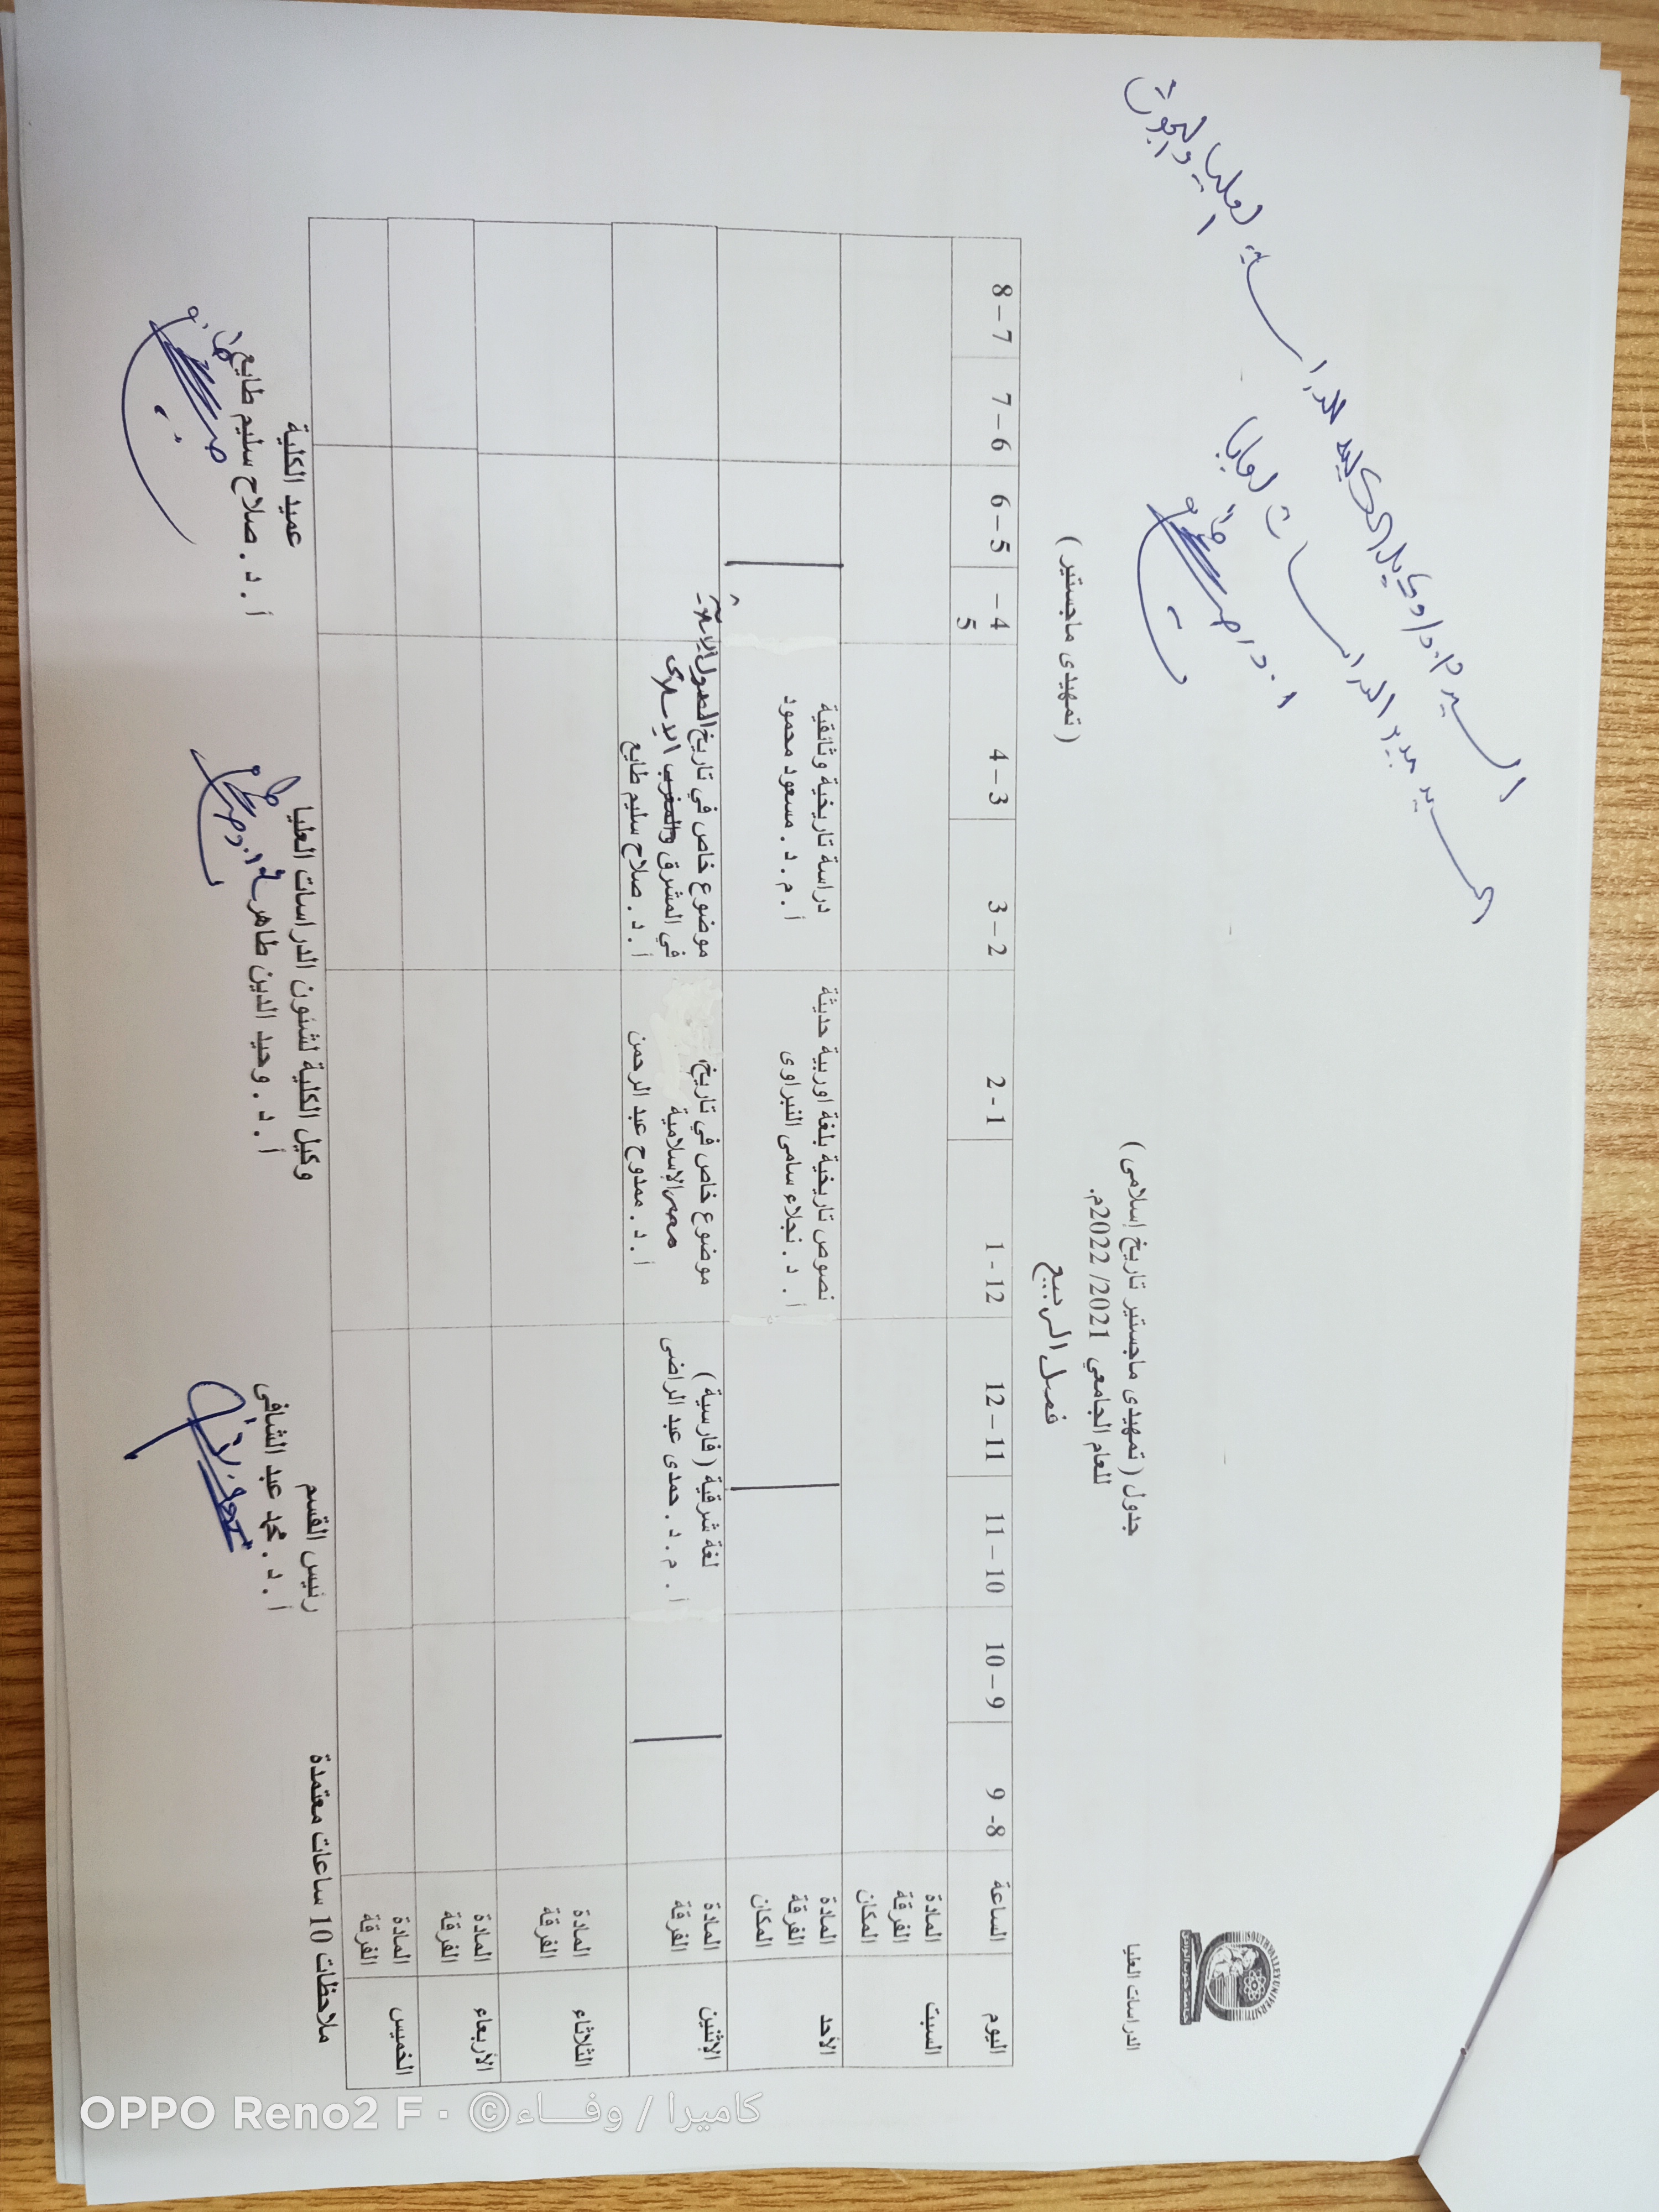 SOUTH VALLEY UNIVERSITY
الدراسات العليا
جدول ( تمهيدى ماجستير تاريخ إسلامى )
للعام الجامعي 2021/ 2022م.
فصل الربيع
( تمهيدى ماجستير )
اليوم الساعة 8- 9 9 – 10 10 – 11 11 – 12 12 - 1 1 - 2 2 – 3 3 – 4 4 – 5 5 – 6 6 – 7 7 – 8
السبت
المادة
الفرقة
المكان
الأحد
المادة
الفرقة
المكان
نصوص تاريخية بلغة اوربية حديثة
أ . د . نجلاء سامى النبراوى
دراسة تاريخية وثائقية
أ . م . د . مسعود محمود
الإثنين
المادة
الفرقة
لغة شرقية ( فارسية )
أ . م . د . حمدى عبد الراضى
موضوع خاص في تاريخ
مصر الإسلامية
أ . د . ممدوح عبد الرحمن
موضوع خاص في تاريخ الدول الإسلامية
في المشرق والمغرب الإسلامى
أ . د . صلاح سليم طايع
الثلاثاء
المادة
الفرقة
الأربعاء
المادة
الفرقة
الخميس
المادة
الفرقة
ملاحظات 10 ساعات معتمدة
رئيس القسم
أ . د . محمد عبد الشافى
وكيل الكلية لشئون الدراسات العليا
أ . د . وحيد الدين طاهر
عميد الكلية
أ . د . صلاح سليم طايع
السيد أ.م.د / وكيل الكلية للدراسات العليا والبحوث
السيد مدير الدراسات العليا
OPPO Reno2 F · ©كاميرا / وفــاء